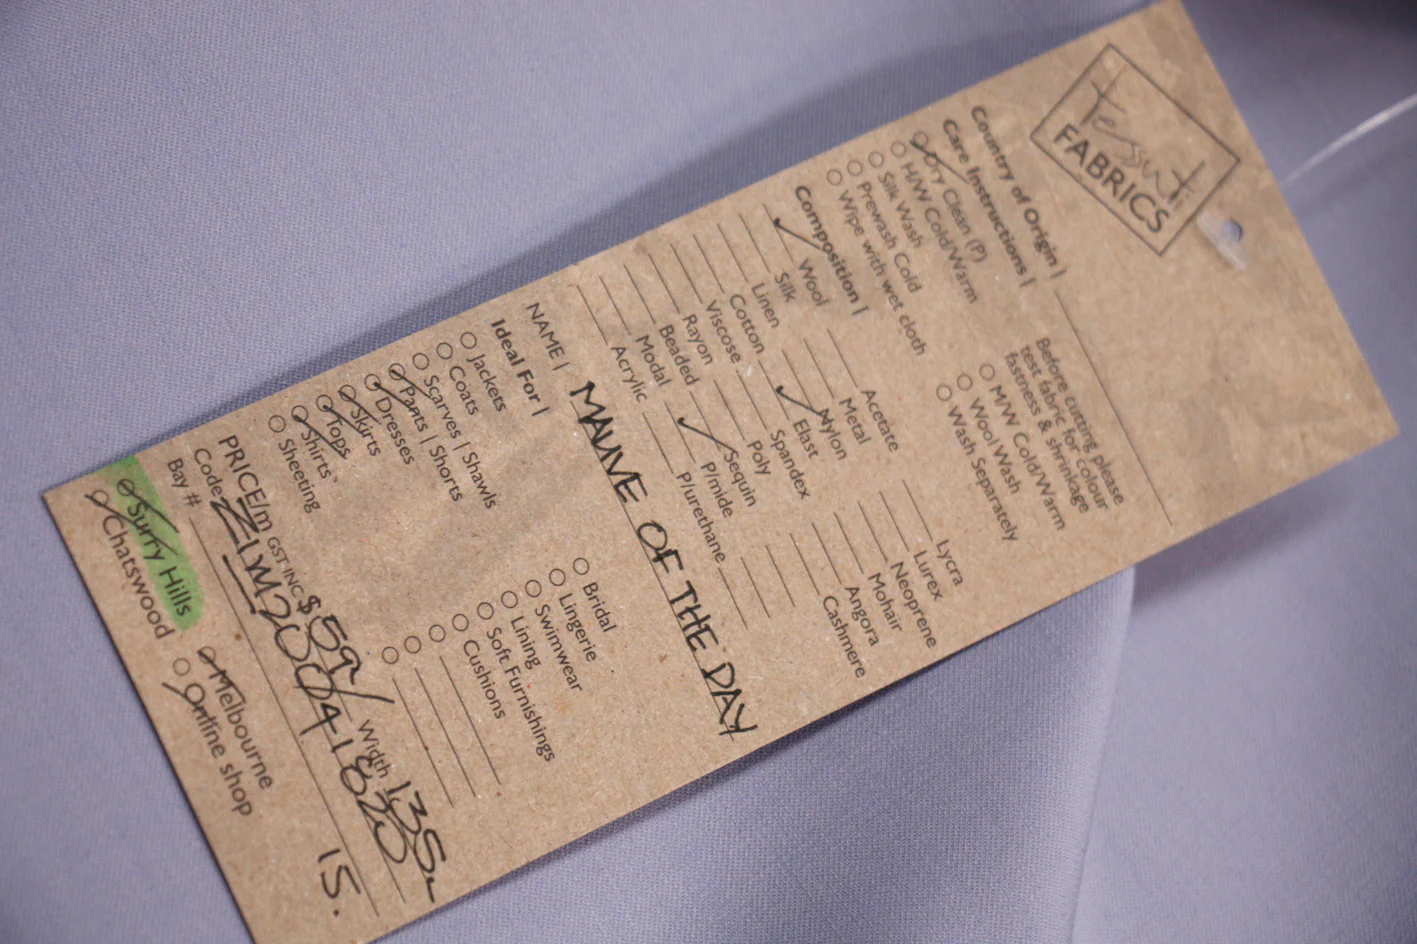 tessuti
FABRICS
Country of Origin |
Care Instructions |
Dry Clean (P)
H/W Cold/Warm
Silk Wash
Prewash Cold
Wipe with wet cloth
Before cutting please
test fabric for colour
fastness & shrinkage
M/W Cold/Warm
Wool Wash
Wash Separately
Composition |
Wool
Silk
Linen
Cotton
Viscose
Rayon
Beaded
Modal
Acrylic
Acetate
Metal
Nylon
Elast
Spandex
Poly
Sequin
P/mide
P/urethane
Lycra
Lurex
Neoprene
Mohair
Angora
Cashmere
NAME | MAUVE OF THE DAY
Ideal For |
Jackets
Coats
Scarves | Shawls
Pants | Shorts
Dresses
Skirts
Tops
Shirts
Sheeting
Bridal
Lingerie
Swimwear
Lining
Soft Furnishings
Cushions
PRICE/m GST INC $59 Width 1.35
Code ZIWM200041820
Bay # 15.
Surry Hills
Chatswood
Melbourne
Online shop